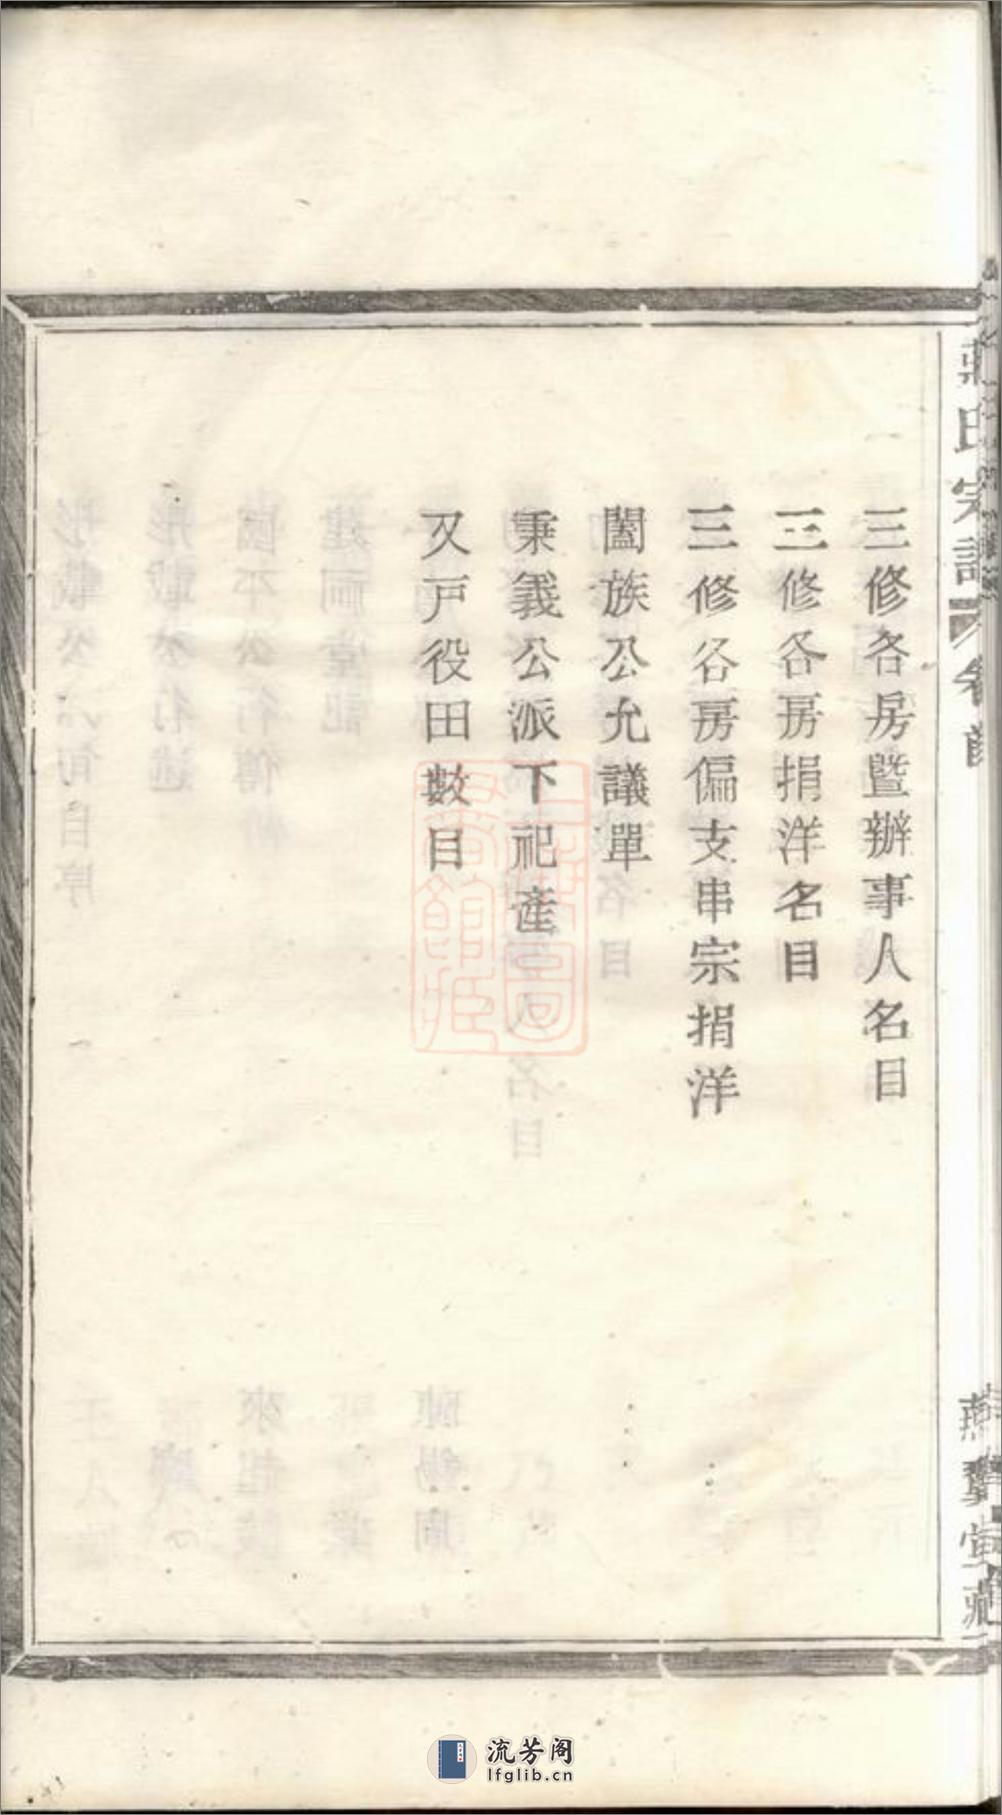 三修各房暨辦事人名目
三修各房捐洋名目
三修各房偏支串宗捐洋
闔族公允議單
秉義公派下祀產
又戶役田數目
氏宗譜 卷首
流芳阁
lfglib.cn